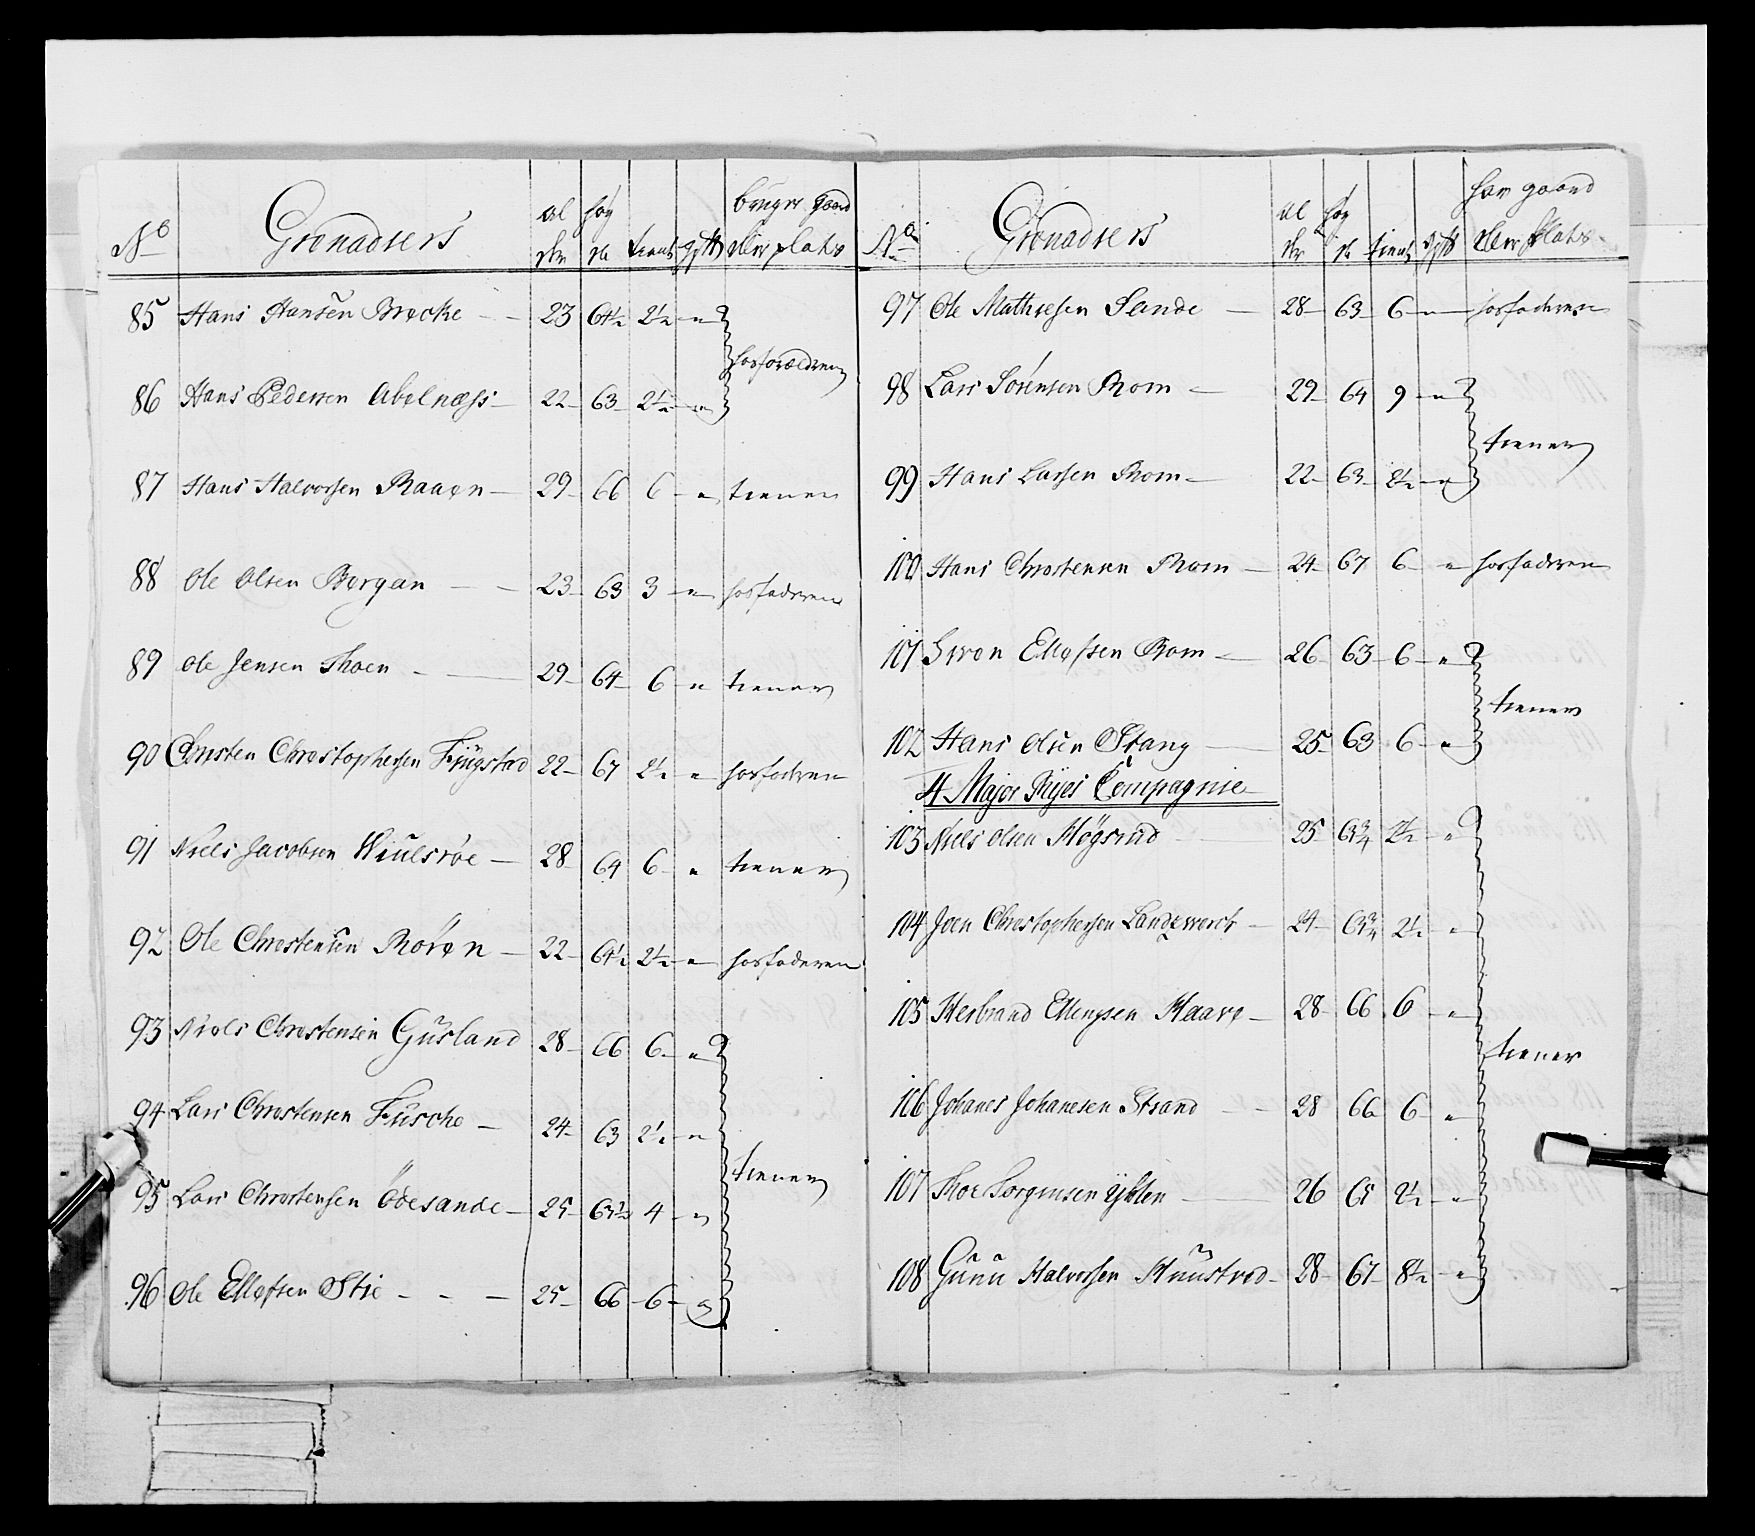 No Grenadeers al der høy de tient gift bruger gaard eller plads
85 Hans Hansen Brecke - - 23 64½ 2½ "
hos forældren
86 Hans Pedersen Abelnæss - 22 63 2½ "
87 Hans Halvorsen Raaen - 29 66 6 " tiener
88 Ole Olsen Bergan - - 23 63 3 " hos faderen
89 Ole Jensen Thoen - - 29 64 6 " tiener
90 Christen Christophersen Fjugstad 22 67 2½ " hos faderen
91 Niels Jacobsen Hiulsrøe - 28 64 6 " tiener
92 Ole Christensen Roren - 22 64½ 2½ " hos faderen
93 Niels Christensen Gusland 28 66 6 "
94 Lars Christensen Fuscke - 24 63 2½ "
tiener
95 Lars Christensen Ödesande - 25 63½ 4 "
96 Ole Ellefsen Stie - - - 25 66 6 "
No Grenadeers al der høy de tient gift har gaard eller plads
97 Ole Mathiesen Sande - 28 63 6 " hos faderen
98 Lars Sørensen Rom - 29 64 9 "
tiener
99 Hans Larsen Rom - 22 63 2½ "
100 Hans Christensen Rom - 24 67 6 " hos faderen
101 Siven Ellefsen Rom - 26 63 6 "
tiener
102 Hans Olsen Stang - 25 63 6 "
4 Major Ryes Compagnie
103 Niels Olsen Høgsrud - 25 63¾ 2½ "
104 Joen Christophersen Landzverk - 24 63¾ 2½ "
105 Herbrand Ellengsen Haave - 28 66 6 "
tiener
106 Johanes Johanesen Strand - - 28 66 6 "
107 Thor Torgersen Ysteen - 26 65 2½ "
108 Gunu Halvorsen Knustvad - 28 67 8½ "